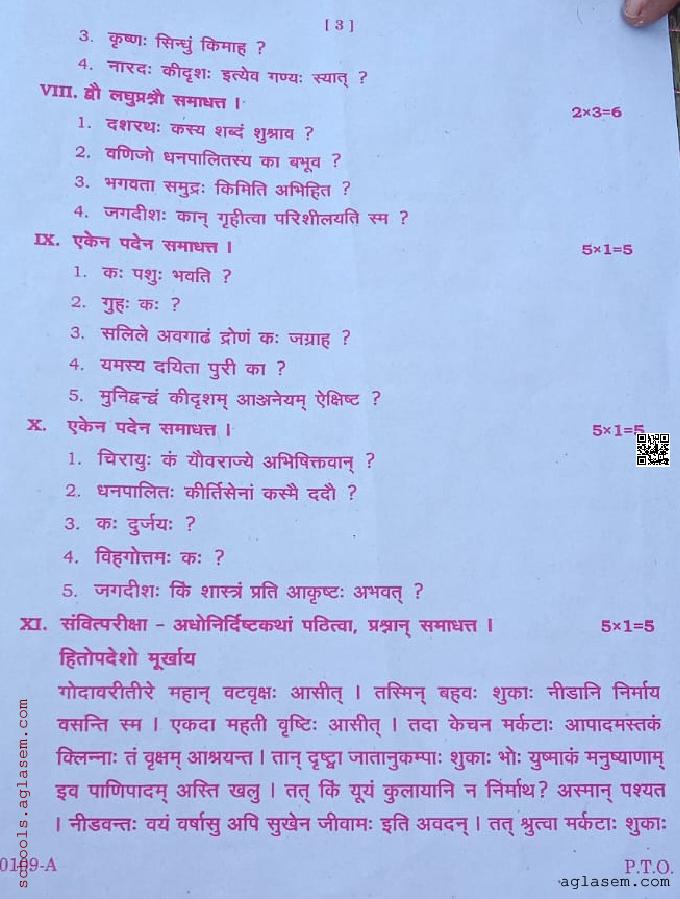 [ 3 ]
3. कृष्णः सिन्धुं किमाह ?
4. नारदः कीदृशः इत्येव गण्यः स्यात् ?
VIII. द्वौ लघुप्रश्नौ समाधत्त । 2×3=6
1. दशरथः कस्य शब्दं शुश्राव ?
2. वणिजो धनपालितस्य का बभूव ?
3. भगवता समुद्रः किमिति अभिहित ?
4. जगदीशः कान् गृहीत्वा परिशीलयति स्म ?
IX. एकेन पदेन समाधत्त । 5×1=5
1. कः पशुः भवति ?
2. गुहः कः ?
3. सलिले अवगाढं द्रोणं कः जग्राह ?
4. यमस्य दयिता पुरी का ?
5. मुनिद्वन्द्वं कीदृशम् आञ्जनेयम् ऐक्षिष्ट ?
X. एकेन पदेन समाधत्त । 5×1=5
1. चिरायुः कं यौवराज्ये अभिषिक्तवान् ?
2. धनपालितः कीर्तिसेनां कस्मै ददौ ?
3. कः दुर्जयः ?
4. विहगोत्तमः कः ?
5. जगदीशः किं शास्त्रं प्रति आकृष्टः अभवत् ?
XI. संवित्परीक्षा - अधोनिर्दिष्टकथां पठित्वा, प्रश्नान् समाधत्त । 5×1=5
हितोपदेशो मूर्खाय
गोदावरीतीरे महान् वटवृक्षः आसीत् । तस्मिन् बहवः शुकाः नीडानि निर्माय
वसन्ति स्म । एकदा महती वृष्टिः आसीत् । तदा केचन मर्कटाः आपादमस्तकं
क्लिन्नाः तं वृक्षम् आश्रयन्त । तान् दृष्ट्वा जातानुकम्पाः शुकाः भोः युष्माकं मनुष्याणाम्
इव पाणिपादम् अस्ति खलु । तत् किं यूयं कुलायानि न निर्माथ? अस्मान् पश्यत
। नीडवन्तः वयं वर्षासु अपि सुखेन जीवामः इति अवदन् । तत् श्रुत्वा मर्कटाः शुकाः
0109-A
P.T.O.
schools.aglasem.com
aglasem.com